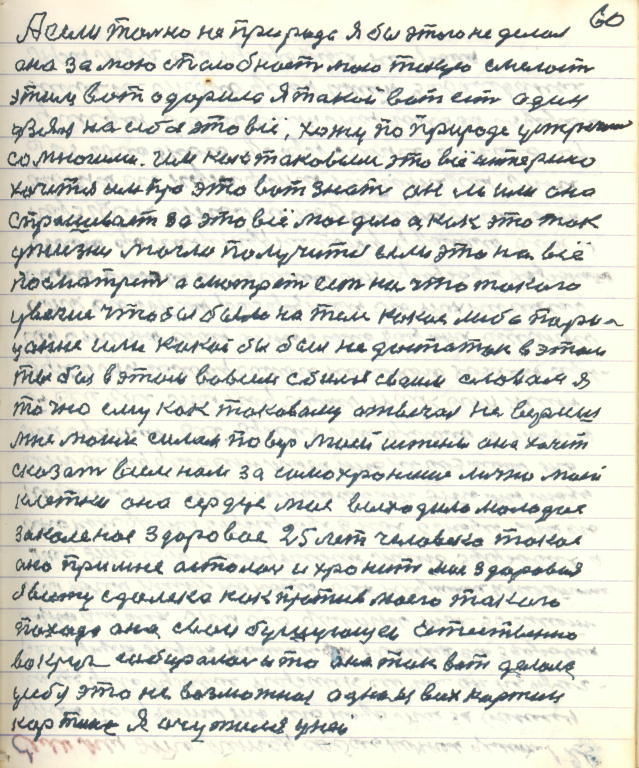 60
А если только на природа Я бы этого не делал
она за мою стилобност мою такую смелост
этим вот одорила Я такой вот ест один
взял на себя это всё, хожу по природе
со многими. Им как таковым это всё интерино
хочится им про это вот знати он ли или она
спрашивает за это всё мое дело а, как это так
в жизни могло получится если это на всё
посматрет а смотрет ест на что такого
увечие чтобы было на теле какое либо
или какой бы был не достаток в этом
ты бы в этом совсим сбился своим словам я
точно ему как таковому отвечал не
мне моим силам повер моей истены она хочит
сказат всем нам за само хронение лично моей
клетки она сердце мае выходило молодое
закаленое здоровае 25 лет человека такое
оно при мне осталос и хронит мае здоровия
Я вижу сдалека как против моего такого
похода она свои бушующей естественно
вокруг собиралас и то она так вот делала
у себя это не возможное одна из них картин
картине Я очутился у ней